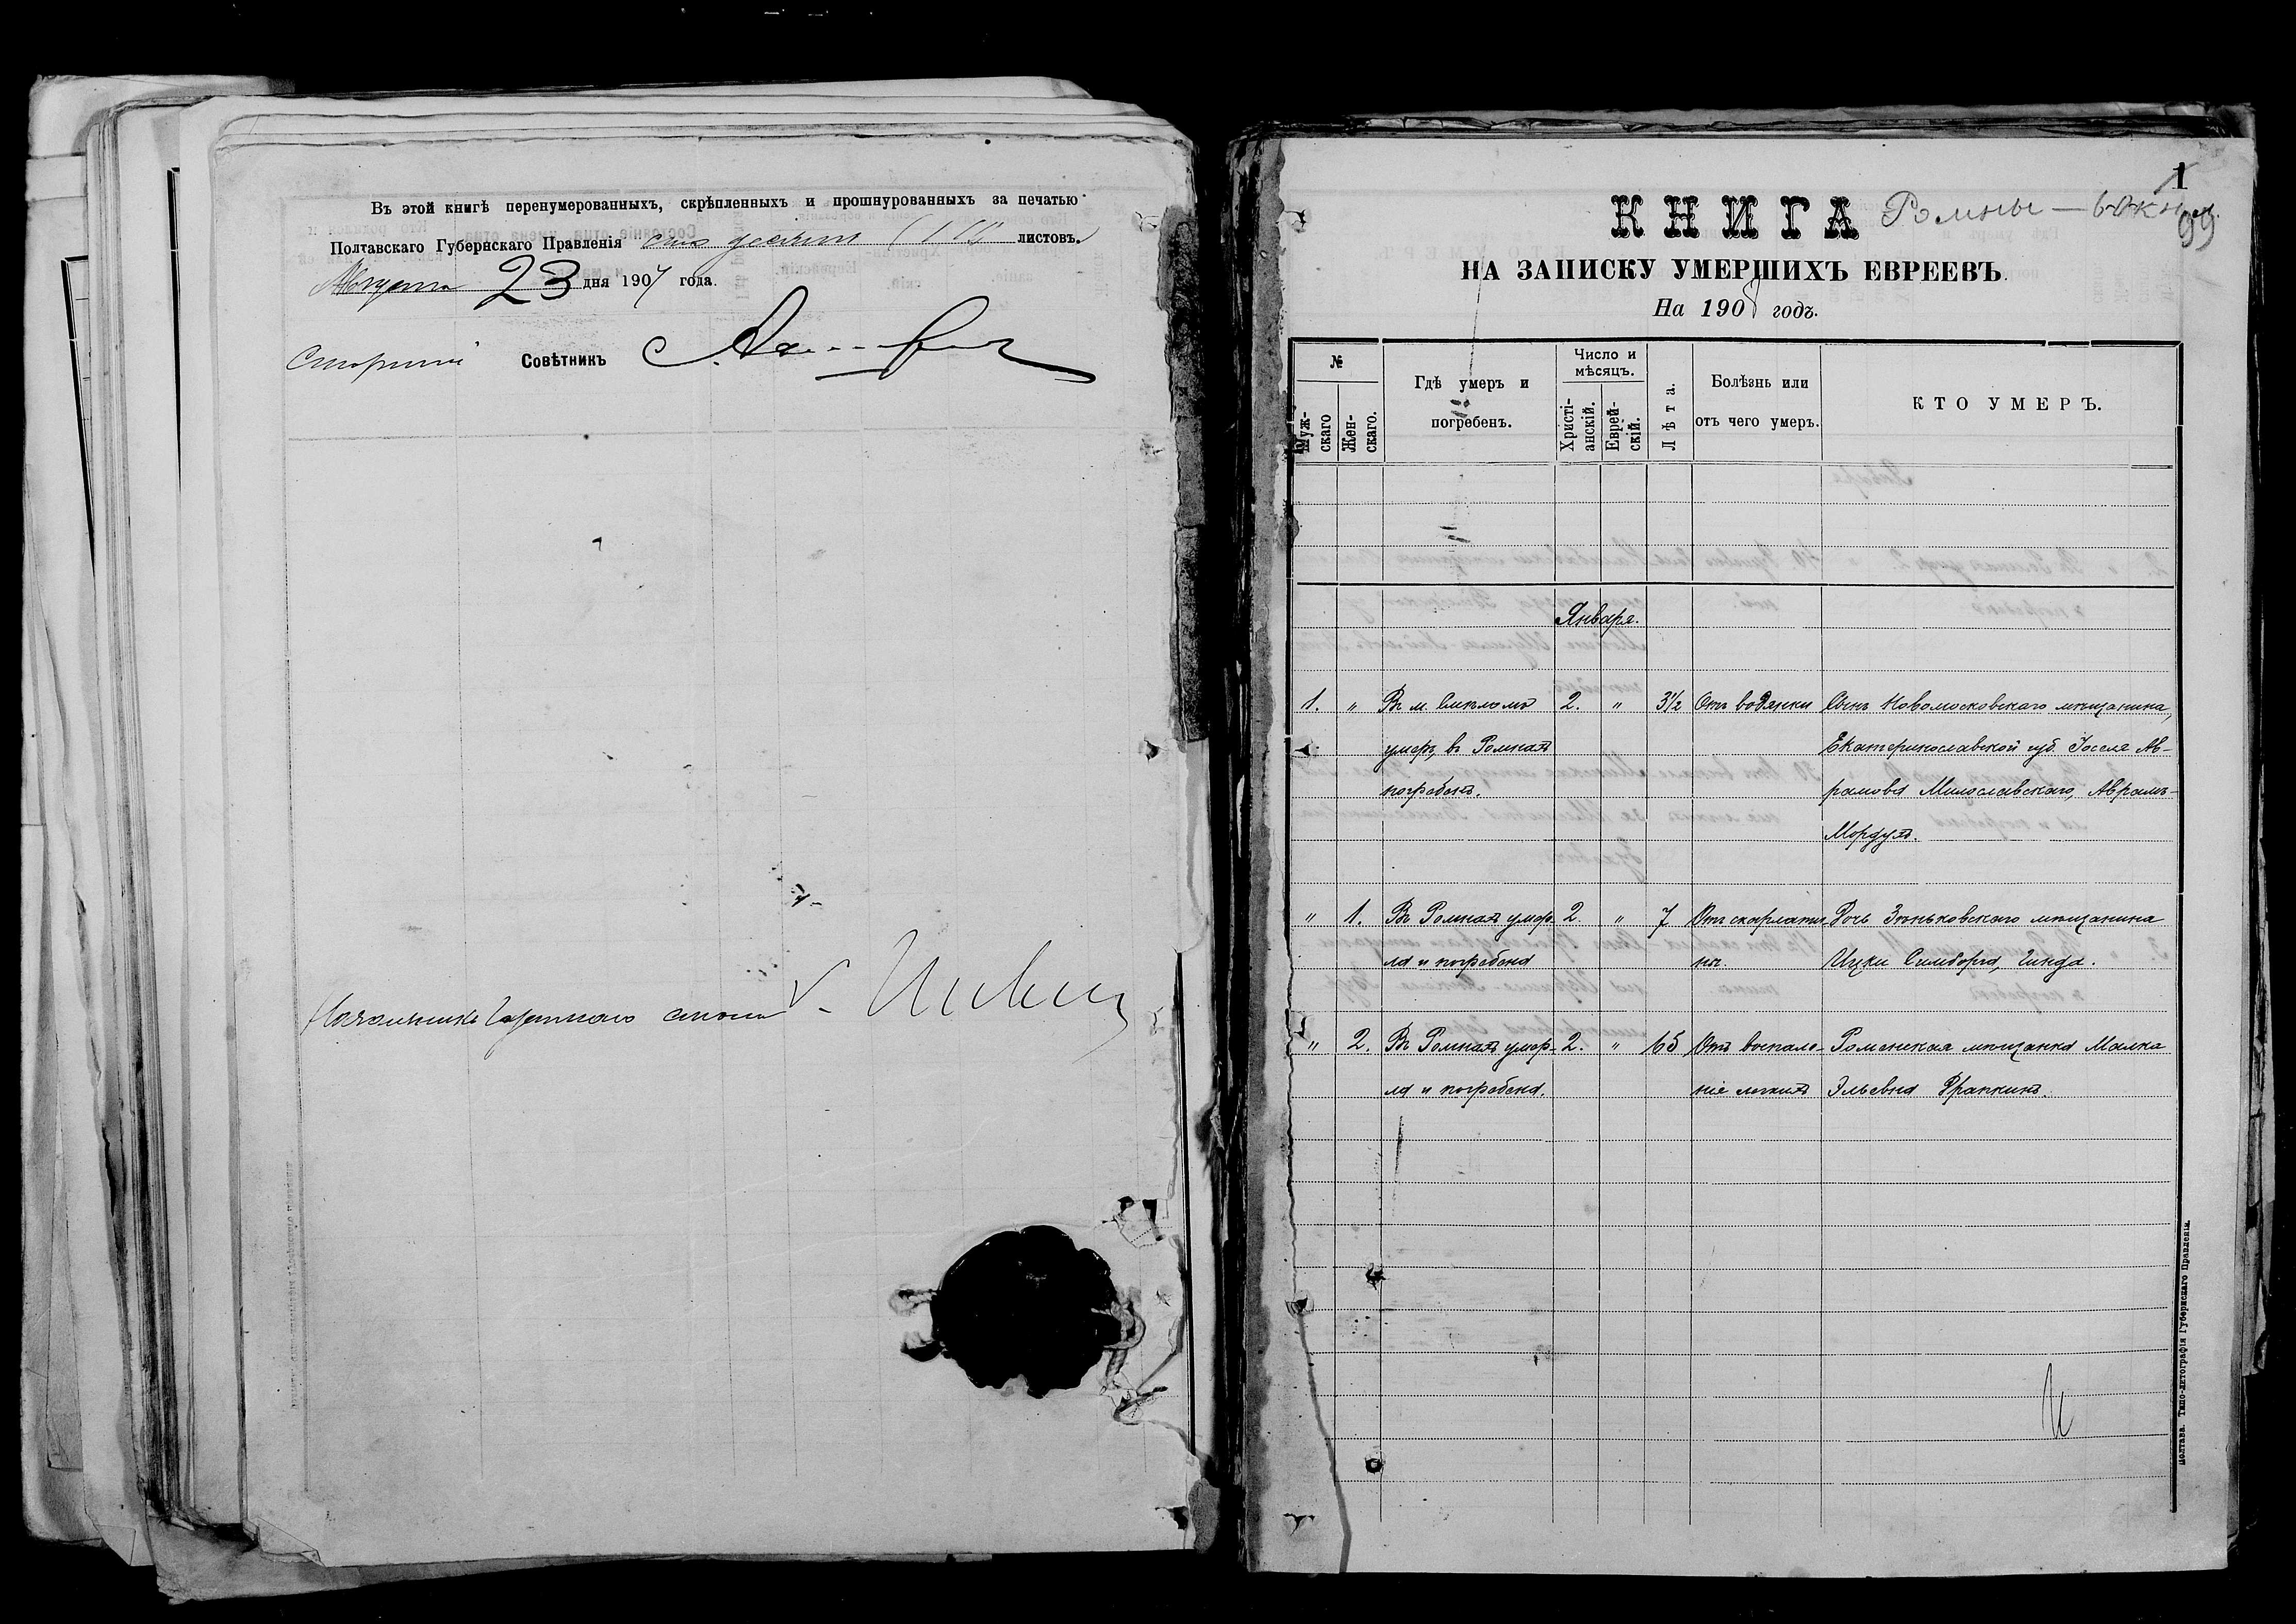 Въ этой книгѣ перенумерованныхъ, скрѣпленныхъ и прошнурованныхъ за печатью
Полтавскаго Губернскаго Правленія сто десять листовъ.
Августа 23 дня 1907 года.
Совѣтникъ
Начальникъ стола
1
КНИГА Ромны
99
НА ЗАПИСКУ УМЕРШИХЪ ЕВРЕЕВЪ.
На 1908 годъ.
№
Муж-
скаго
Жен-
скаго.
Гдѣ умеръ и
погребенъ.
Число и
мѣсяцъ.
Христі-
анскій.
Еврей-
скій.
Лѣта.
Болѣзнь или
отъ чего умеръ.
КТО УМЕРЪ.
Января.
1. " Въ м. Смѣломъ 2. " 3½ Отъ водянки Сынъ Новомосковскаго мѣщанина,
умеръ, въ Ромнахъ Екатеринославской губ. Іоселя Ав-
погребенъ. рамова Милославскаго, Аврамъ-
Мордухъ.
" 1. Въ Ромнахъ умер- 2. " 7 Отъ скарлати- Дочь Зѣньковскаго мѣщанина
ла и погребена ны. Ицки Симборга, Гинда.
" 2. Въ Ромнахъ умер- 2. " 65 Отъ воспале- Роменская мѣщанка Малка
ла и погребена. ніе легкихъ Эльевна Фрапкинъ.
Полтава. Типо-литографія Губернскаго Правленія.